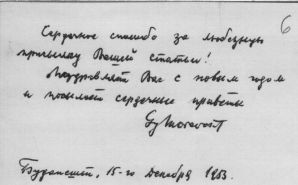 6
Сердечное спасибо за любезную
присылку Вашей статьи!
Поздравляет Вас с новым годом
и посылает сердечные приветы
Будапешт, 15-го Декабря 1953.